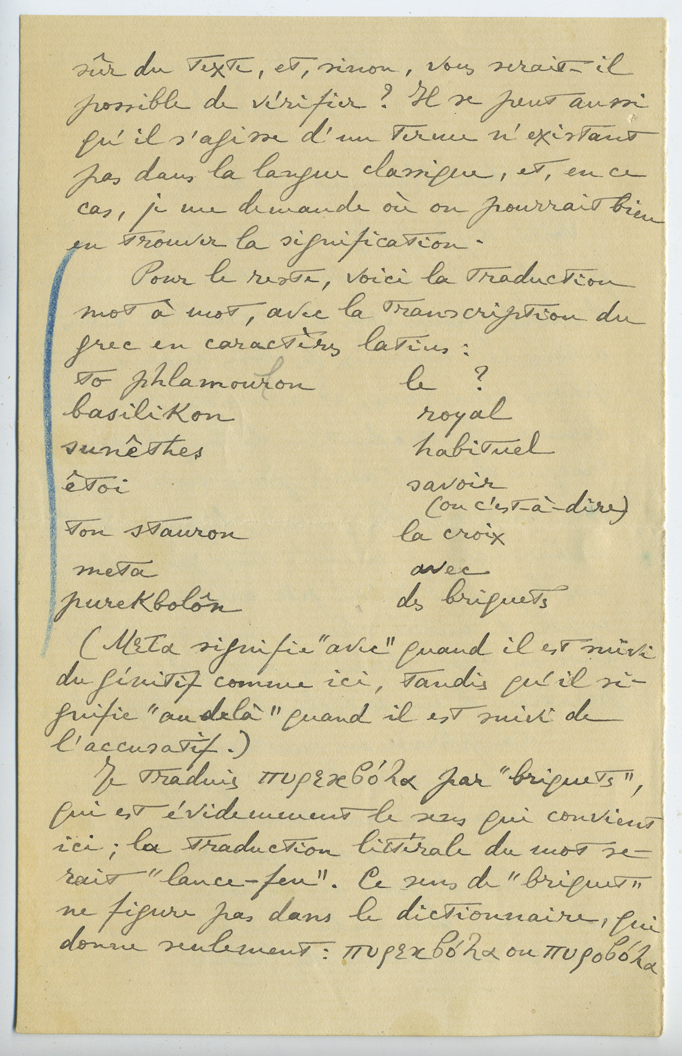 sûr du texte, et, sinon, vous serait-il
possible de vérifier ? Il se peut aussi
qu'il s'agisse d'un terme n'existant
pas dans la langue classique, et, en ce
cas, je me demande où on pourrait bien
en trouver la signification.
Pour le reste, voici la traduction
mot à mot, avec la transcription du
grec en caractères latins :
to phlamouron le ?
basilikon royal
sunêthes habituel
êtoi savoir
(ou c'est-à-dire)
ton stauron la croix
meta avec
purekbolôn des briquets
(Meta signifie "avec" quand il est suivi
du génitif comme ici, tandis qu'il si-
gnifie "au delà" quand il est suivi de
l'accusatif.)
Je traduis πυρεκβόλα par "briquets",
qui est évidemment le sens qui convient
ici ; la traduction littérale du mot se-
rait "lance-feu". Ce sens de "briquet"
ne figure pas dans le dictionnaire, qui
donne seulement : πυρεκβόλα ou πυροβόλα